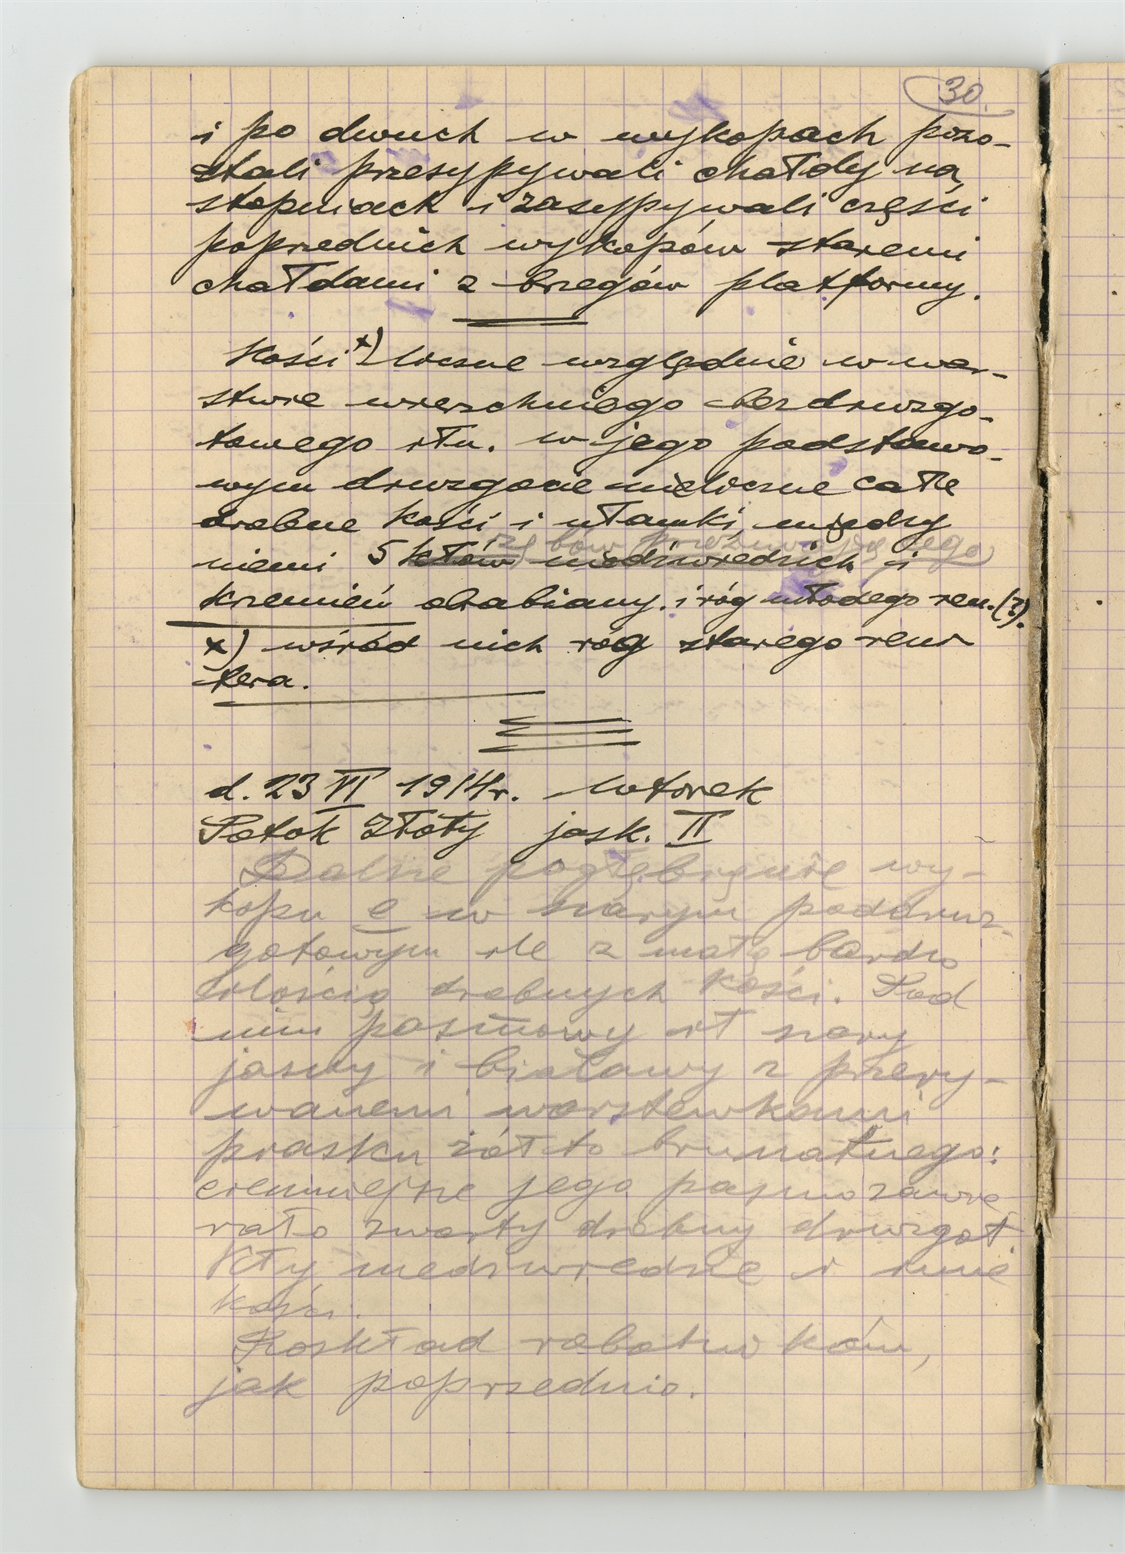 30.
i po dwuch w wykopach pozo-
stali przesypywali chałdy na
stopniach i zasypywali części
poprzednich wykopów staremi
chałdami z brzegów platformy.
Kości x) liczne względnie w war-
stwie wierzchniego bezdruzgo-
towego iłu. w jego podstawo-
wym druzgocie nieliczne całe
drobne kości i ułamki, między
zębów
niemi 5 kłów niedźwiedzich i
krzemień obrabiany. i róg młodego ren.(?).
x) wśród nich róg starego reni
fera.
d. 23 VI 1914 r. Wtorek
Potok Złoty jask. II
Dalsze pogłębienie wy-
kopu e w szarym poddruz-
gotowym ile z małą bardzo
ilością drobnych kości. Pod
nim pasmowy ił szary
jasny i białawy z przery-
wanemi warstewkami
piasku żółto brunatnego:
ciemniejsze jego pasmo zawie
rało zwarty drobny druzgot
Kły niedźwiedzie i inne
kości.
Rozkład robotników,
jak poprzednio.